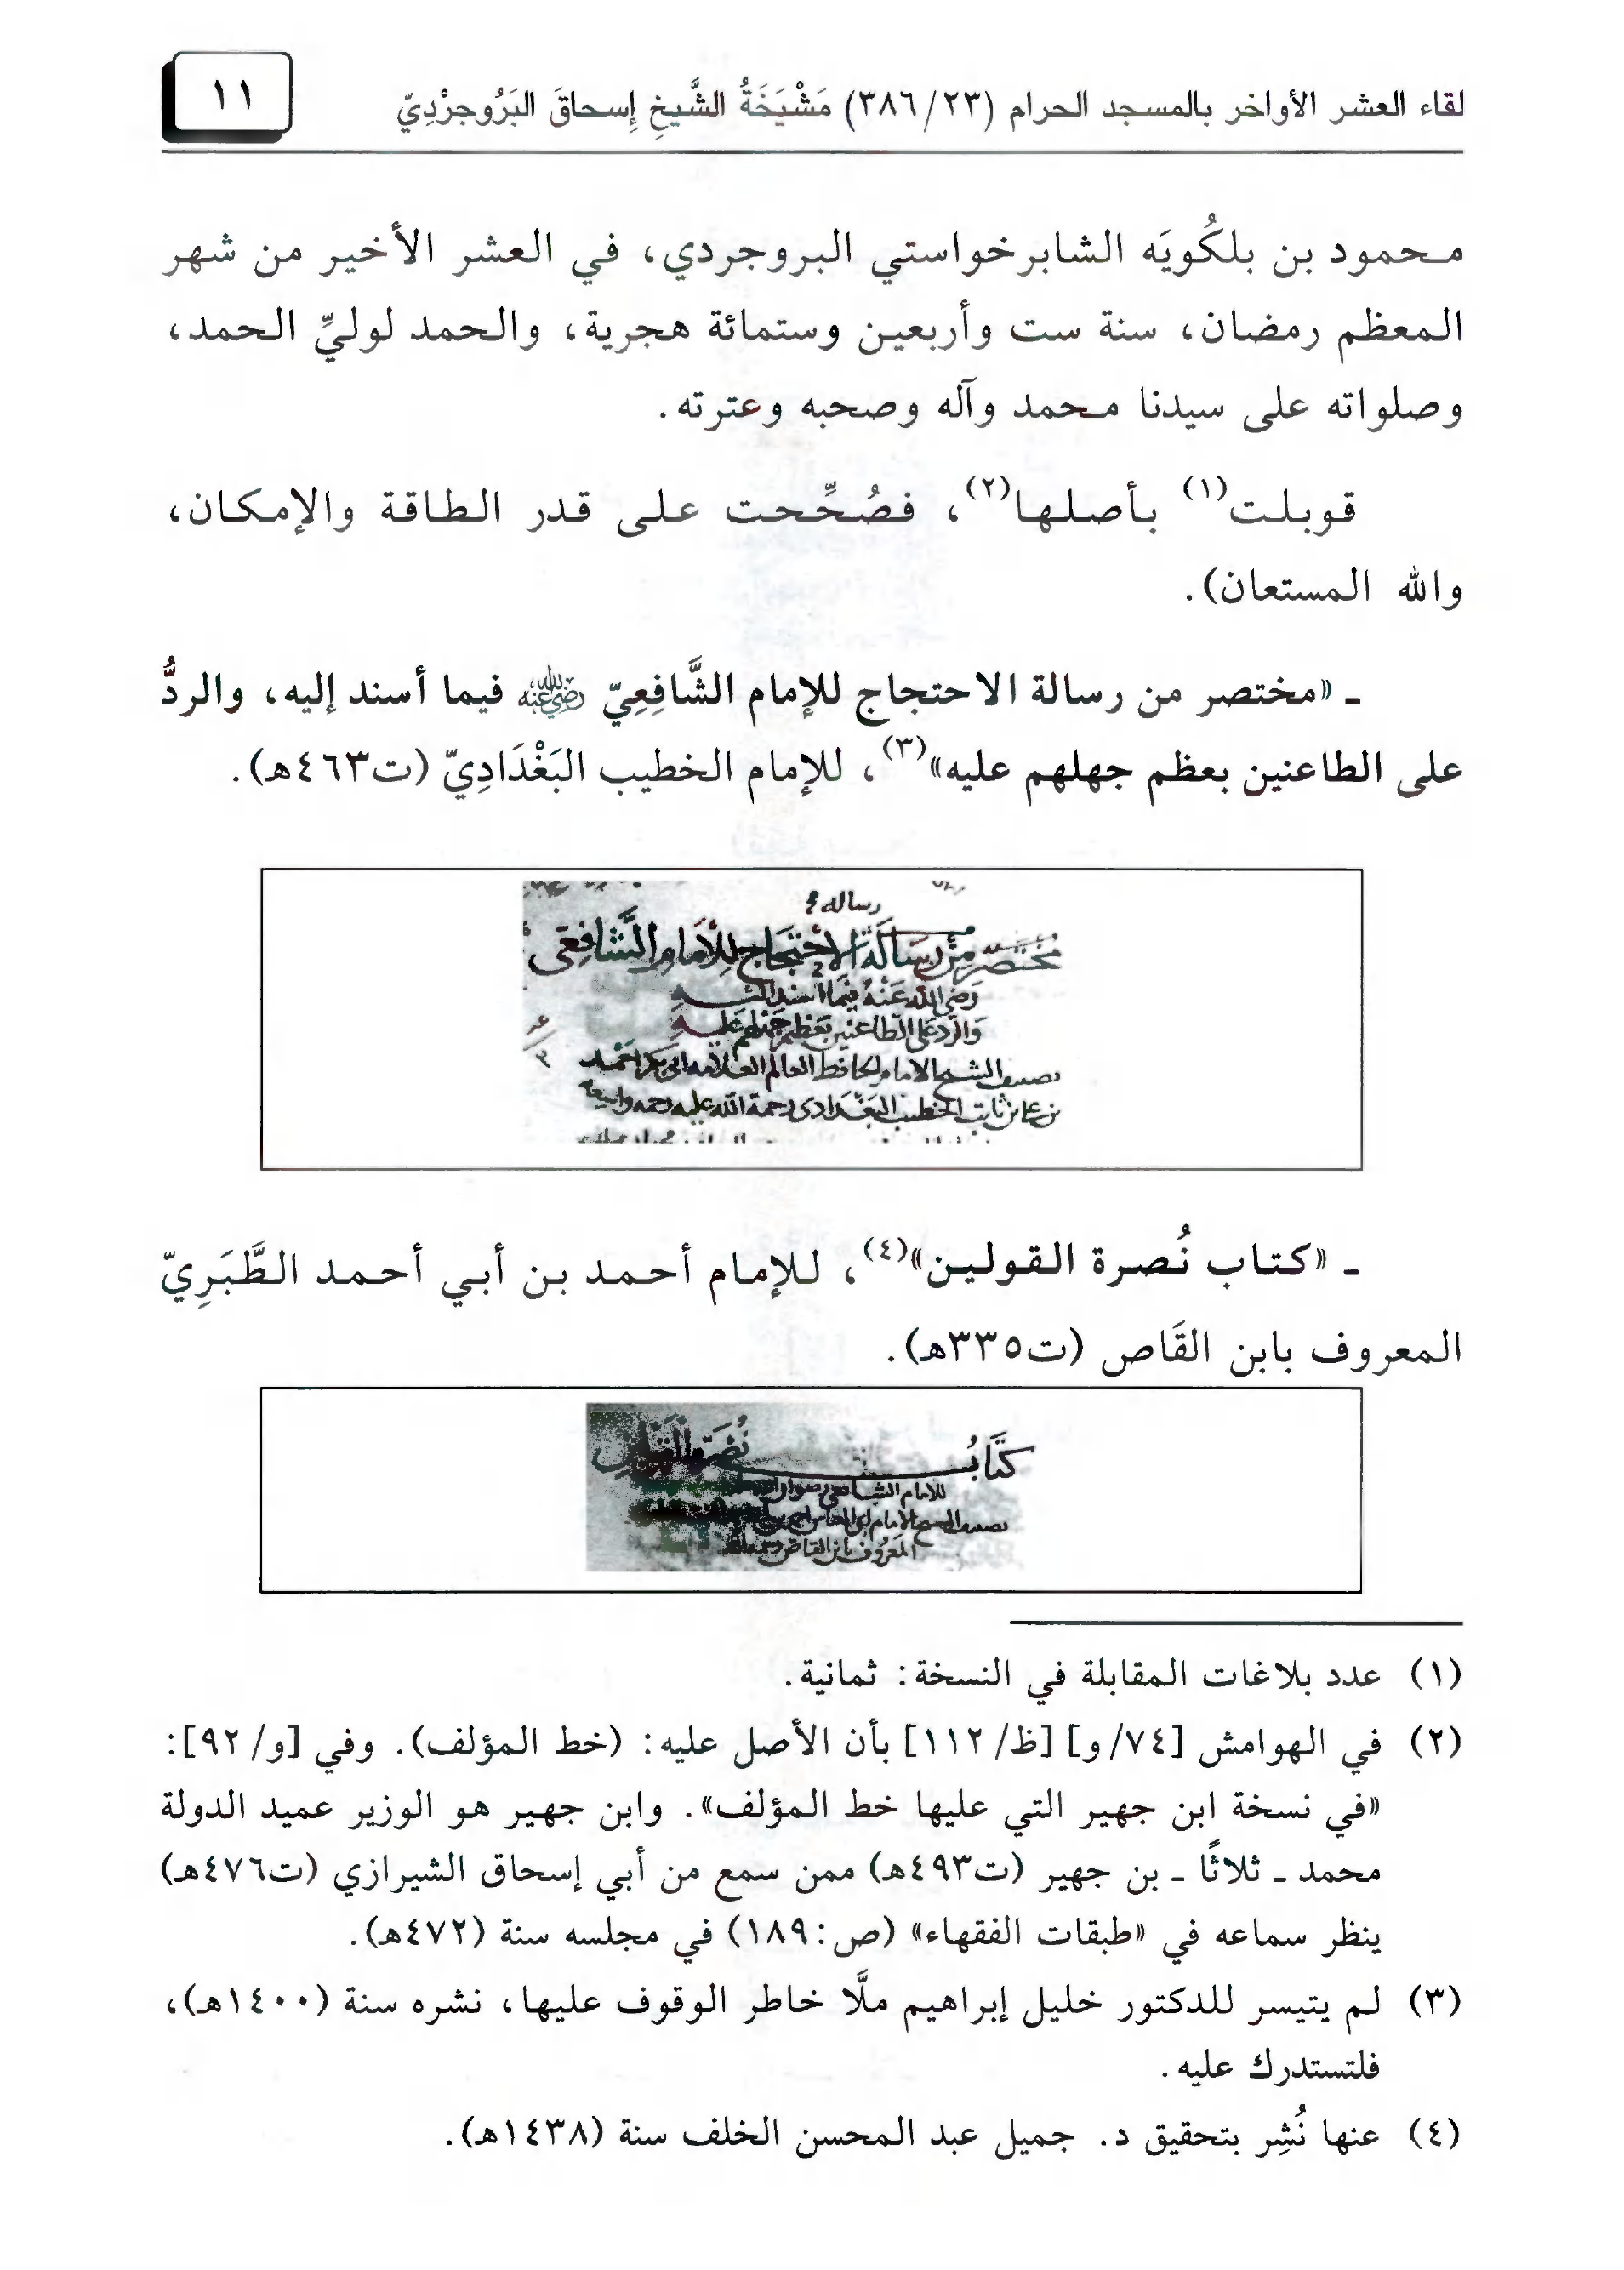 لقاء العشر الأواخر بالمسجد الحرام (٣٨٦/٢٣) مَشْيَخَةُ الشَّيخِ إِسحاقَ البَرُوجرْدِيّ
١١
محمود بن بلكُويَه الشابرخواستي البروجردي، في العشر الأخير من شهر
المعظم رمضان، سنة ست وأربعين وستمائة هجرية، والحمد لوليِّ الحمد،
وصلواته على سيدنا محمد وآله وصحبه وعترته.
قوبلت(١) بأصلها(٢)، فصُحِّحت على قدر الطاقة والإمكان،
والله المستعان).
ـ «مختصر من رسالة الاحتجاج للإمام الشَّافِعِيّ رضي الله عنه فيما أسند إليه، والردُّ
على الطاعنين بعظم جهلهم عليه»(٣)، للإمام الخطيب البَغْدَادِيّ (ت٤٦٣هـ).
رساله
مختصر من رسالة الاحتجاج للإمام الشافعي
رضي الله عنه فيما اسند اليه
والرد على الطاعنين بعظم جهلهم عليه
تصنيف الشيخ الامام الحافظ العالم العلامه ابي بكر احمد
بن علي بن ثابت الخطيب البغدادي رحمة الله عليه رحمه واسعه
ـ «كتاب نُصرة القولين»(٤)، للإمام أحمد بن أبي أحمد الطَّبَرِيّ
المعروف بابن القَاص (ت٣٣٥هـ).
كتاب نصرة القولين
للامام الشافعي رضوان
تصنيف الشيخ الامام ابي العباس احمد
المعروف بابن القاص رحمه الله
(١) عدد بلاغات المقابلة في النسخة: ثمانية.
(٢) في الهوامش [٧٤/و] [ظ/١١٢] بأن الأصل عليه: (خط المؤلف). وفي [و/٩٢]:
«في نسخة ابن جهير التي عليها خط المؤلف». وابن جهير هو الوزير عميد الدولة
محمد ـ ثلاثًا ـ بن جهير (ت٤٩٣هـ) ممن سمع من أبي إسحاق الشيرازي (ت٤٧٦هـ)
ينظر سماعه في «طبقات الفقهاء» (ص:١٨٩) في مجلسه سنة (٤٧٢هـ).
(٣) لم يتيسر للدكتور خليل إبراهيم ملَّا خاطر الوقوف عليها، نشره سنة (١٤٠٠هـ)،
فلتستدرك عليه.
(٤) عنها نُشِر بتحقيق د. جميل عبد المحسن الخلف سنة (١٤٣٨هـ).